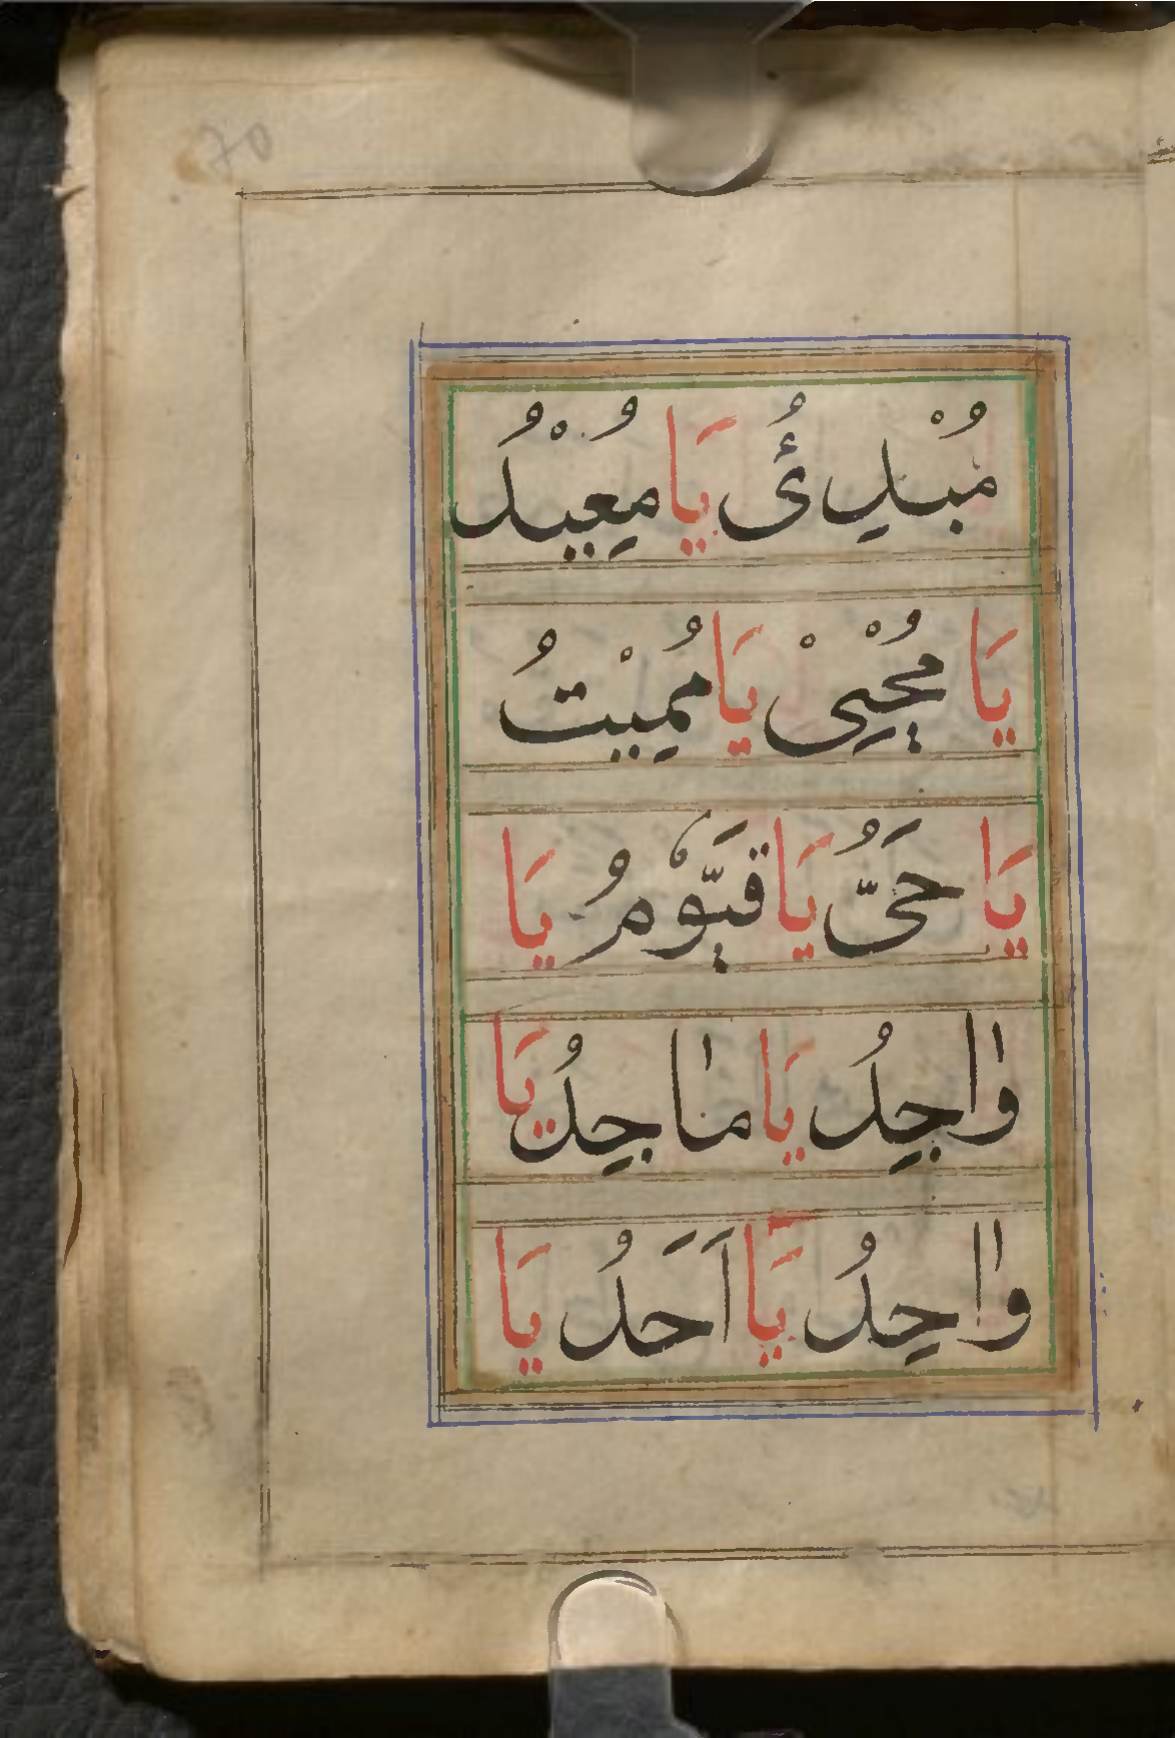 مُبْدِئُ يَا مُعِيْدُ
يَا مُحْيِيْ يَا مُمِيْتُ
يَا حَىُّ يَا قَيُّوْمُ يَا
وٰاجِدُ يَا مٰاجِدُ يَا
وٰاحِدُ يَا اَحَدُ يَا